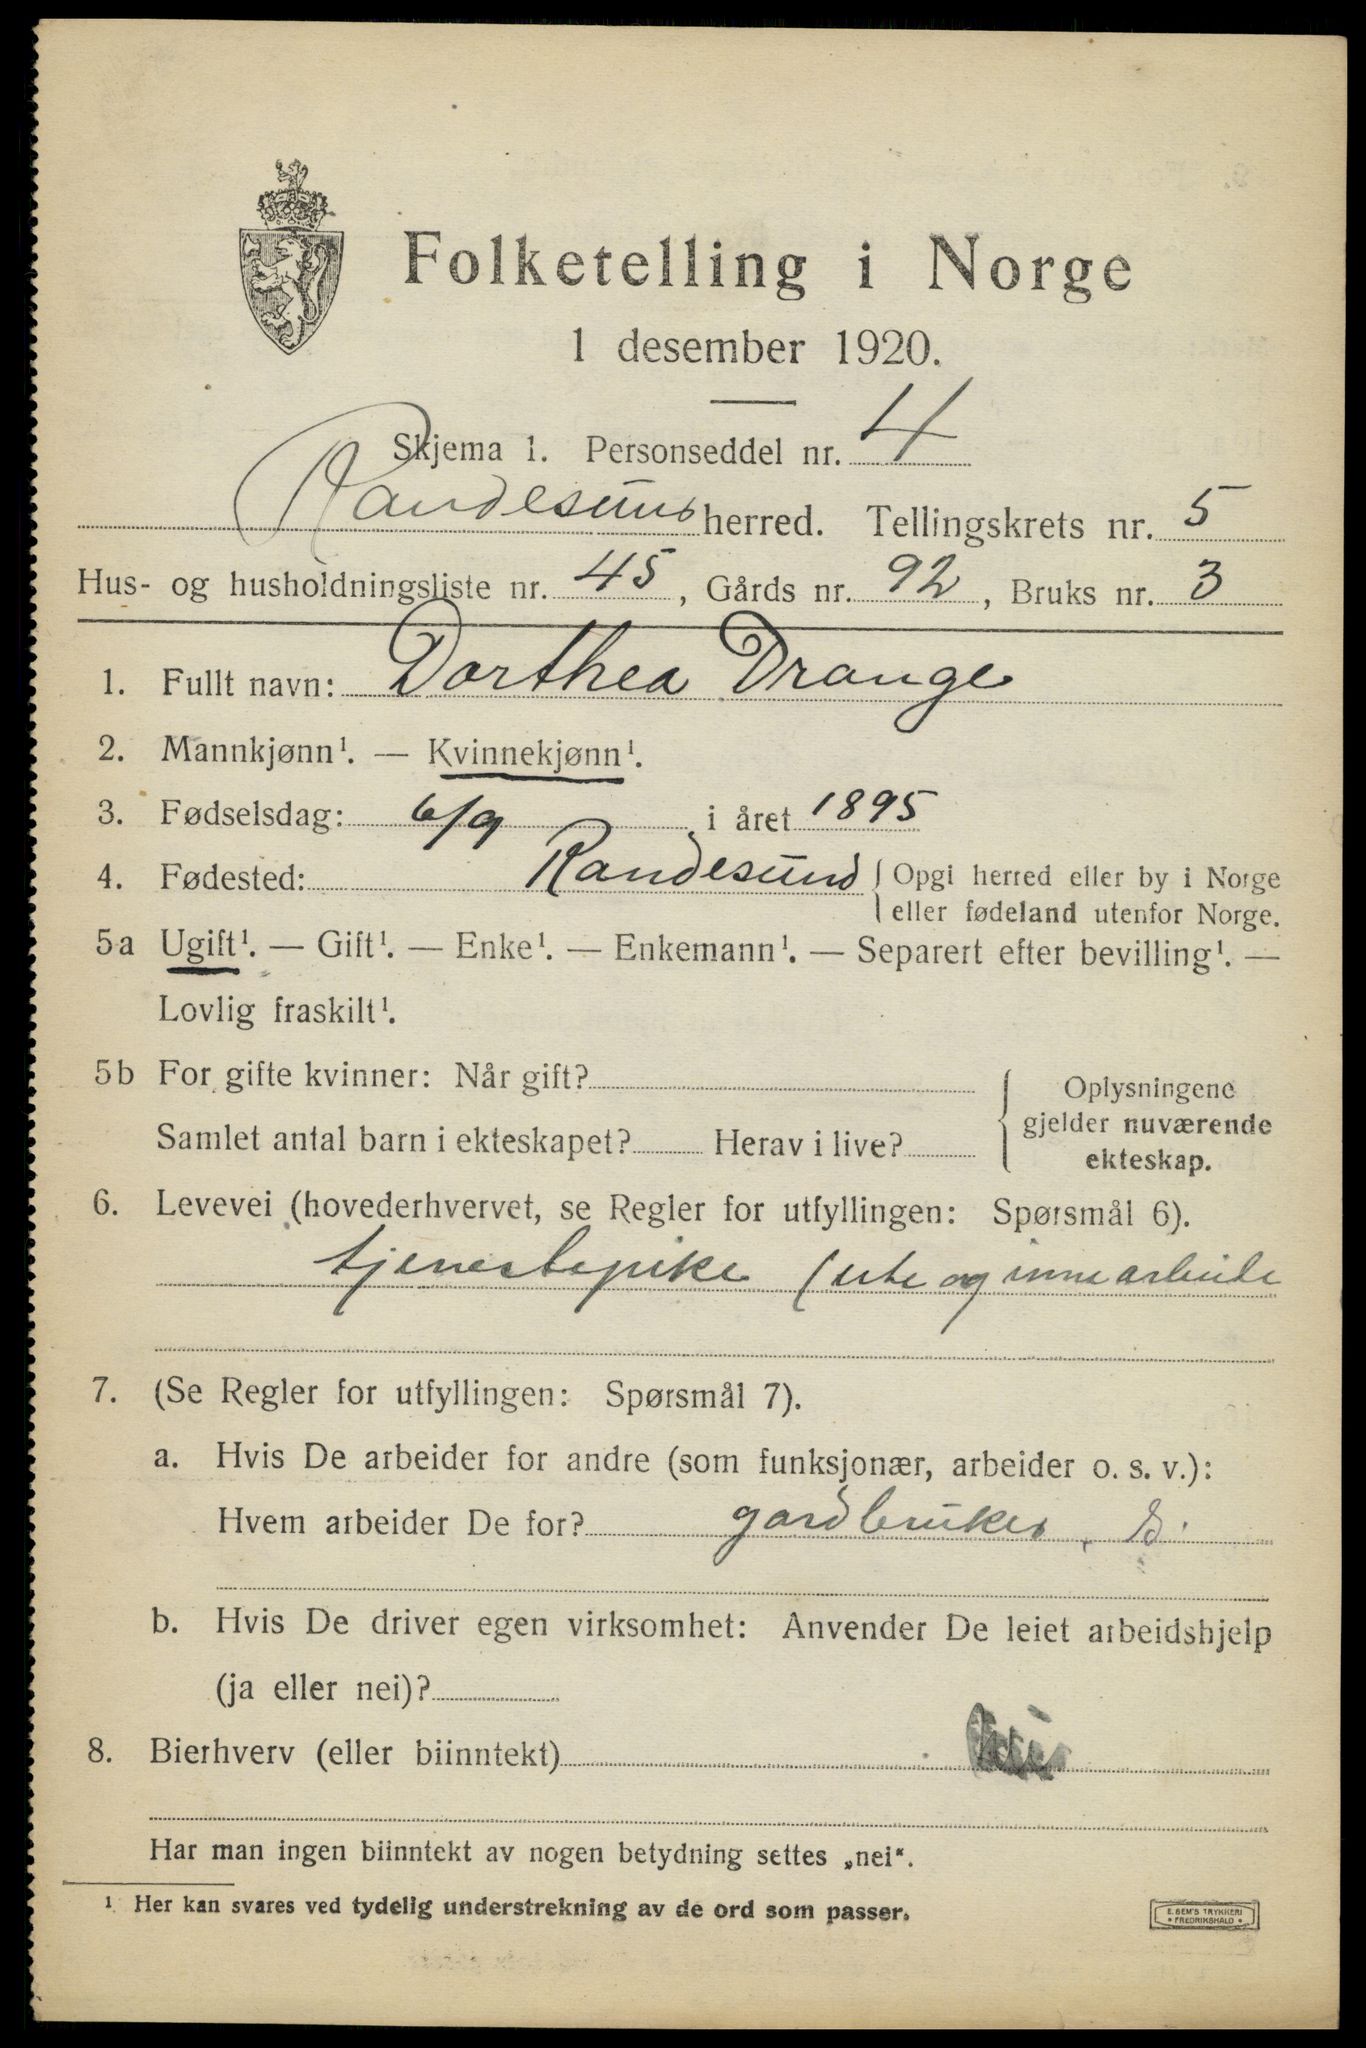 Folketelling i Norge
1 desember 1920.
Skjema 1. Personseddel nr. 4
Randesund herred. Tellingskrets nr. 5
Hus- og husholdningsliste nr. 45, Gårds nr. 92, Bruks nr. 3
1. Fullt navn: Dorthea Drange
2. Mannkjønn¹. — Kvinnekjønn¹.
3. Fødselsdag: 6/9 i året 1895
4. Fødested: Randesund { Opgi herred eller by i Norge
eller fødeland utenfor Norge.
5a Ugift¹. — Gift¹. — Enke¹. — Enkemann¹. — Separert efter bevilling¹. —
Lovlig fraskilt¹.
5b For gifte kvinner: Når gift?
Samlet antal barn i ekteskapet? Herav i live?
Oplysningene
gjelder nuværende
ekteskap.
6. Levevei (hovederhvervet, se Regler for utfyllingen: Spørsmål 6).
tjenestepike (ute og inne arbeide
7. (Se Regler for utfyllingen: Spørsmål 7).
a. Hvis De arbeider for andre (som funksjonær, arbeider o. s. v.):
Hvem arbeider De for? gardbruker
b. Hvis De driver egen virksomhet: Anvender De leiet arbeidshjelp
(ja eller nei)?
8. Bierhverv (eller biinntekt)
Har man ingen biinntekt av nogen betydning settes „nei".
¹ Her kan svares ved tydelig understrekning av de ord som passer.
E. SEM'S TRYKKERI
FREDRIKSHALD